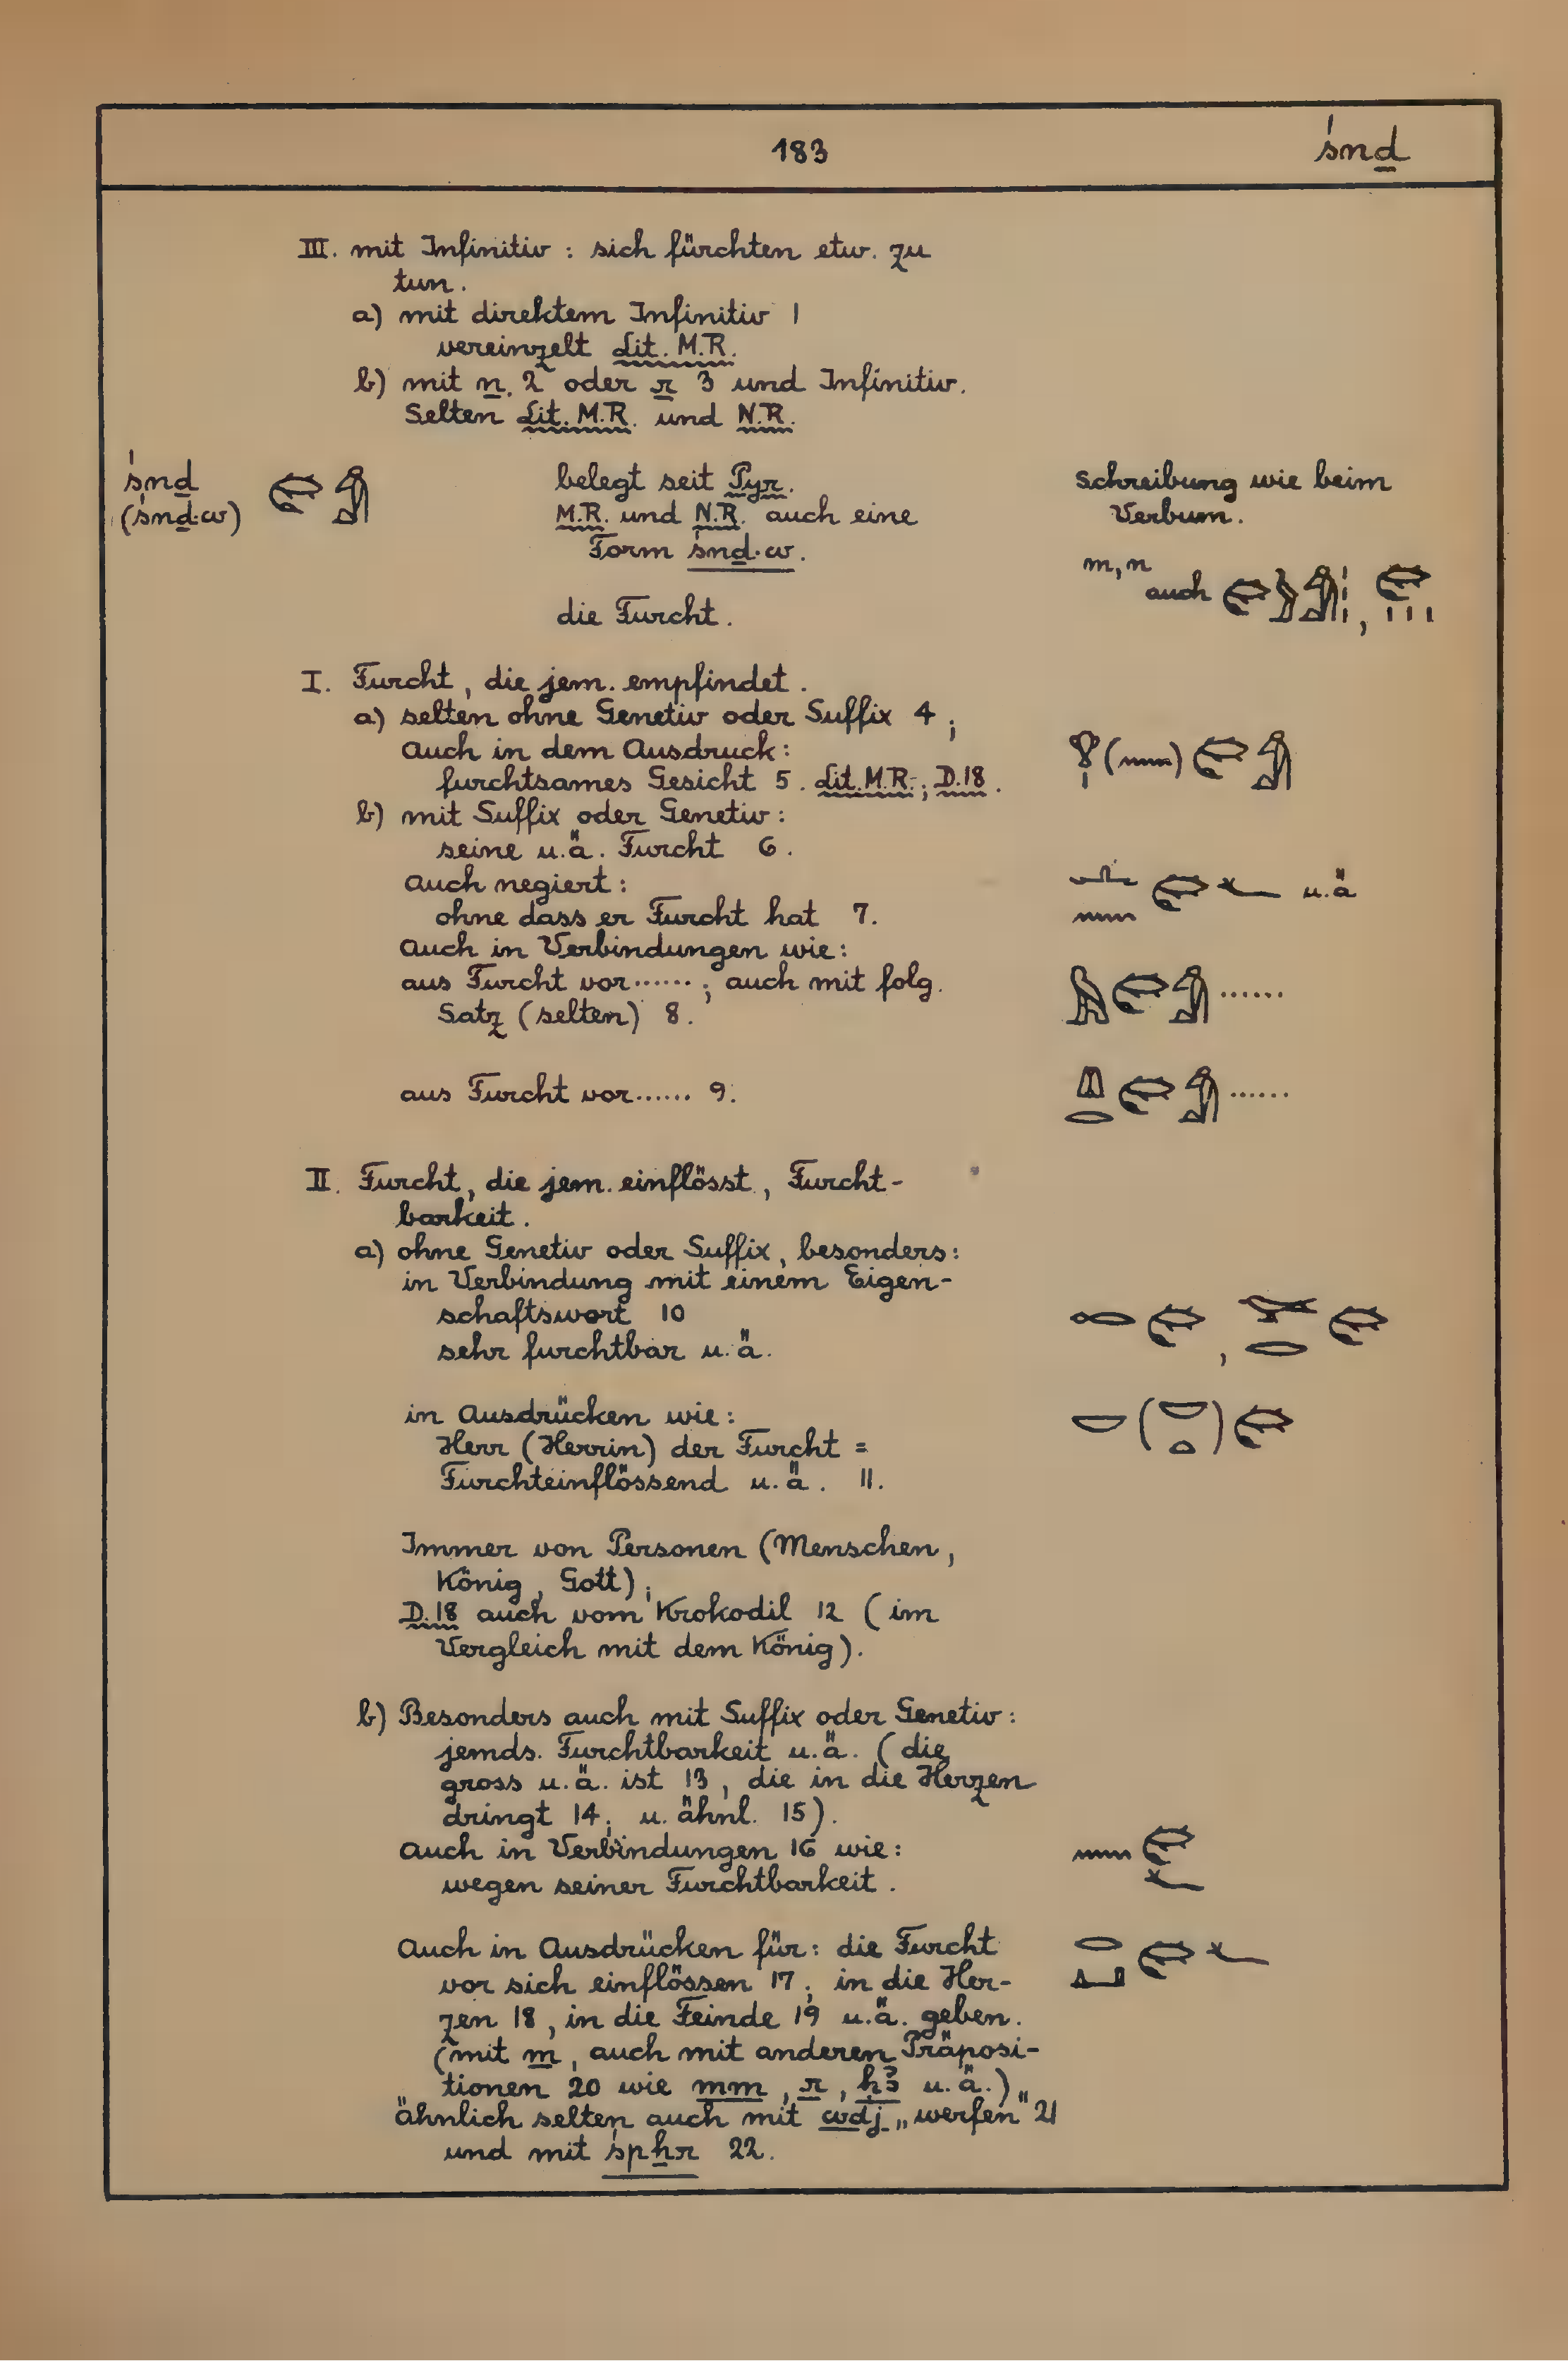 183 śnḏ
III. mit Infinitiv : sich fürchten etw. zu
tun.
a) mit direktem Infinitiv 1
vereinzelt Lit. M.R.
b) mit n 2 oder r 3 und Infinitiv.
Selten Lit. M.R. und N.R.
śnḏ
(śnḏ·w)
belegt seit Pyr.
M.R. und N.R. auch eine
Form śnḏ·w.
die Furcht.
Schreibung wie beim
Verbum.
m, n
auch
I. Furcht, die jem. empfindet.
a) selten ohne Genetiv oder Suffix 4 ;
auch in dem Ausdruck:
furchtsames Gesicht 5. Lit. M.R.; D.18.
b) mit Suffix oder Genetiv:
seine u.ä. Furcht 6.
auch negiert:
ohne dass er Furcht hat 7. u.ä
auch in Verbindungen wie:
aus Furcht vor ...... ; auch mit folg. ......
Satz (selten) 8.
aus Furcht vor ...... 9. ......
II. Furcht, die jem. einflösst, Furcht-
barkeit.
a) ohne Genetiv oder Suffix, besonders:
in Verbindung mit einem Eigen-
schaftswort 10
sehr furchtbar u.ä.
in Ausdrücken wie:
Herr (Herrin) der Furcht =
Furchteinflössend u.ä. 11.
Immer von Personen (Menschen,
König, Gott);
D.18 auch vom Krokodil 12 (im
Vergleich mit dem König).
b) Besonders auch mit Suffix oder Genetiv:
jemds. Furchtbarkeit u.ä. (die
gross u.ä. ist 13, die in die Herzen
dringt 14; u. ähnl. 15).
auch in Verbindungen 16 wie:
wegen seiner Furchtbarkeit.
auch in Ausdrücken für: die Furcht
vor sich einflössen 17; in die Her-
zen 18, in die Feinde 19 u.ä. geben.
(mit m, auch mit anderen Präposi-
tionen 20 wie mm, r, ḫꜣ u.ä.)
ähnlich selten auch mit wdj „werfen" 21
und mit śpẖr 22.